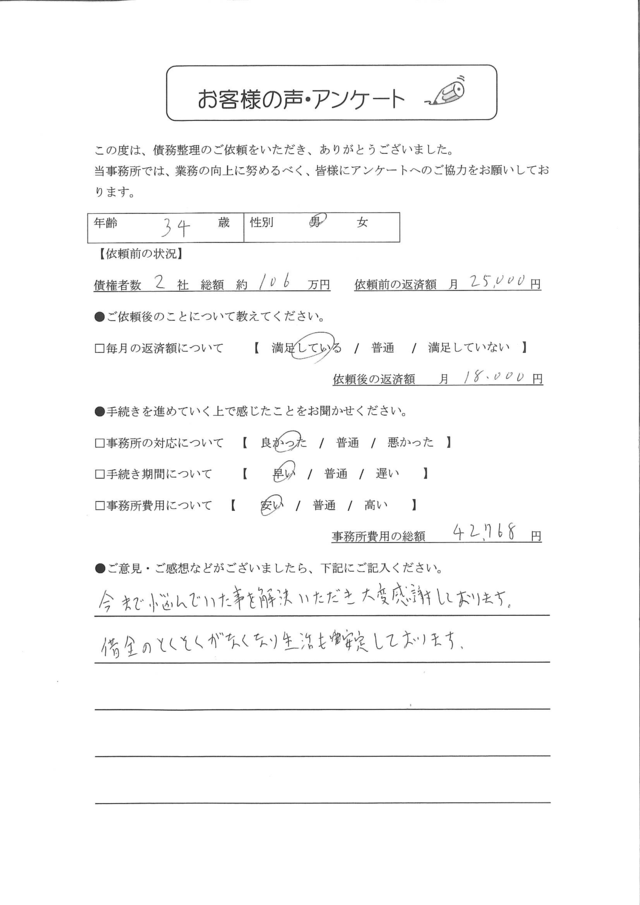 お客様の声・アンケート
この度は、債務整理のご依頼をいただき、ありがとうございました。
当事務所では、業務の向上に努めるべく、皆様にアンケートへのご協力をお願いしてお
ります。
年齢 34 歳 性別 男 女
【依頼前の状況】
債権者数 2 社 総額 約 106 万円 依頼前の返済額 月 25,000 円
●ご依頼後のことについて教えてください。
□毎月の返済額について 【 満足している / 普通 / 満足していない 】
依頼後の返済額 月 18.000 円
●手続きを進めていく上で感じたことをお聞かせください。
□事務所の対応について 【 良かった / 普通 / 悪かった 】
□手続き期間について 【 早い / 普通 / 遅い 】
□事務所費用について 【 安い / 普通 / 高い 】
事務所費用の総額 42,768 円
●ご意見・ご感想などがございましたら、下記にご記入ください。
今まで悩んでいた事を解決いただき大変感謝しております。
借金のとくそくがなくなり生活も安定しております。